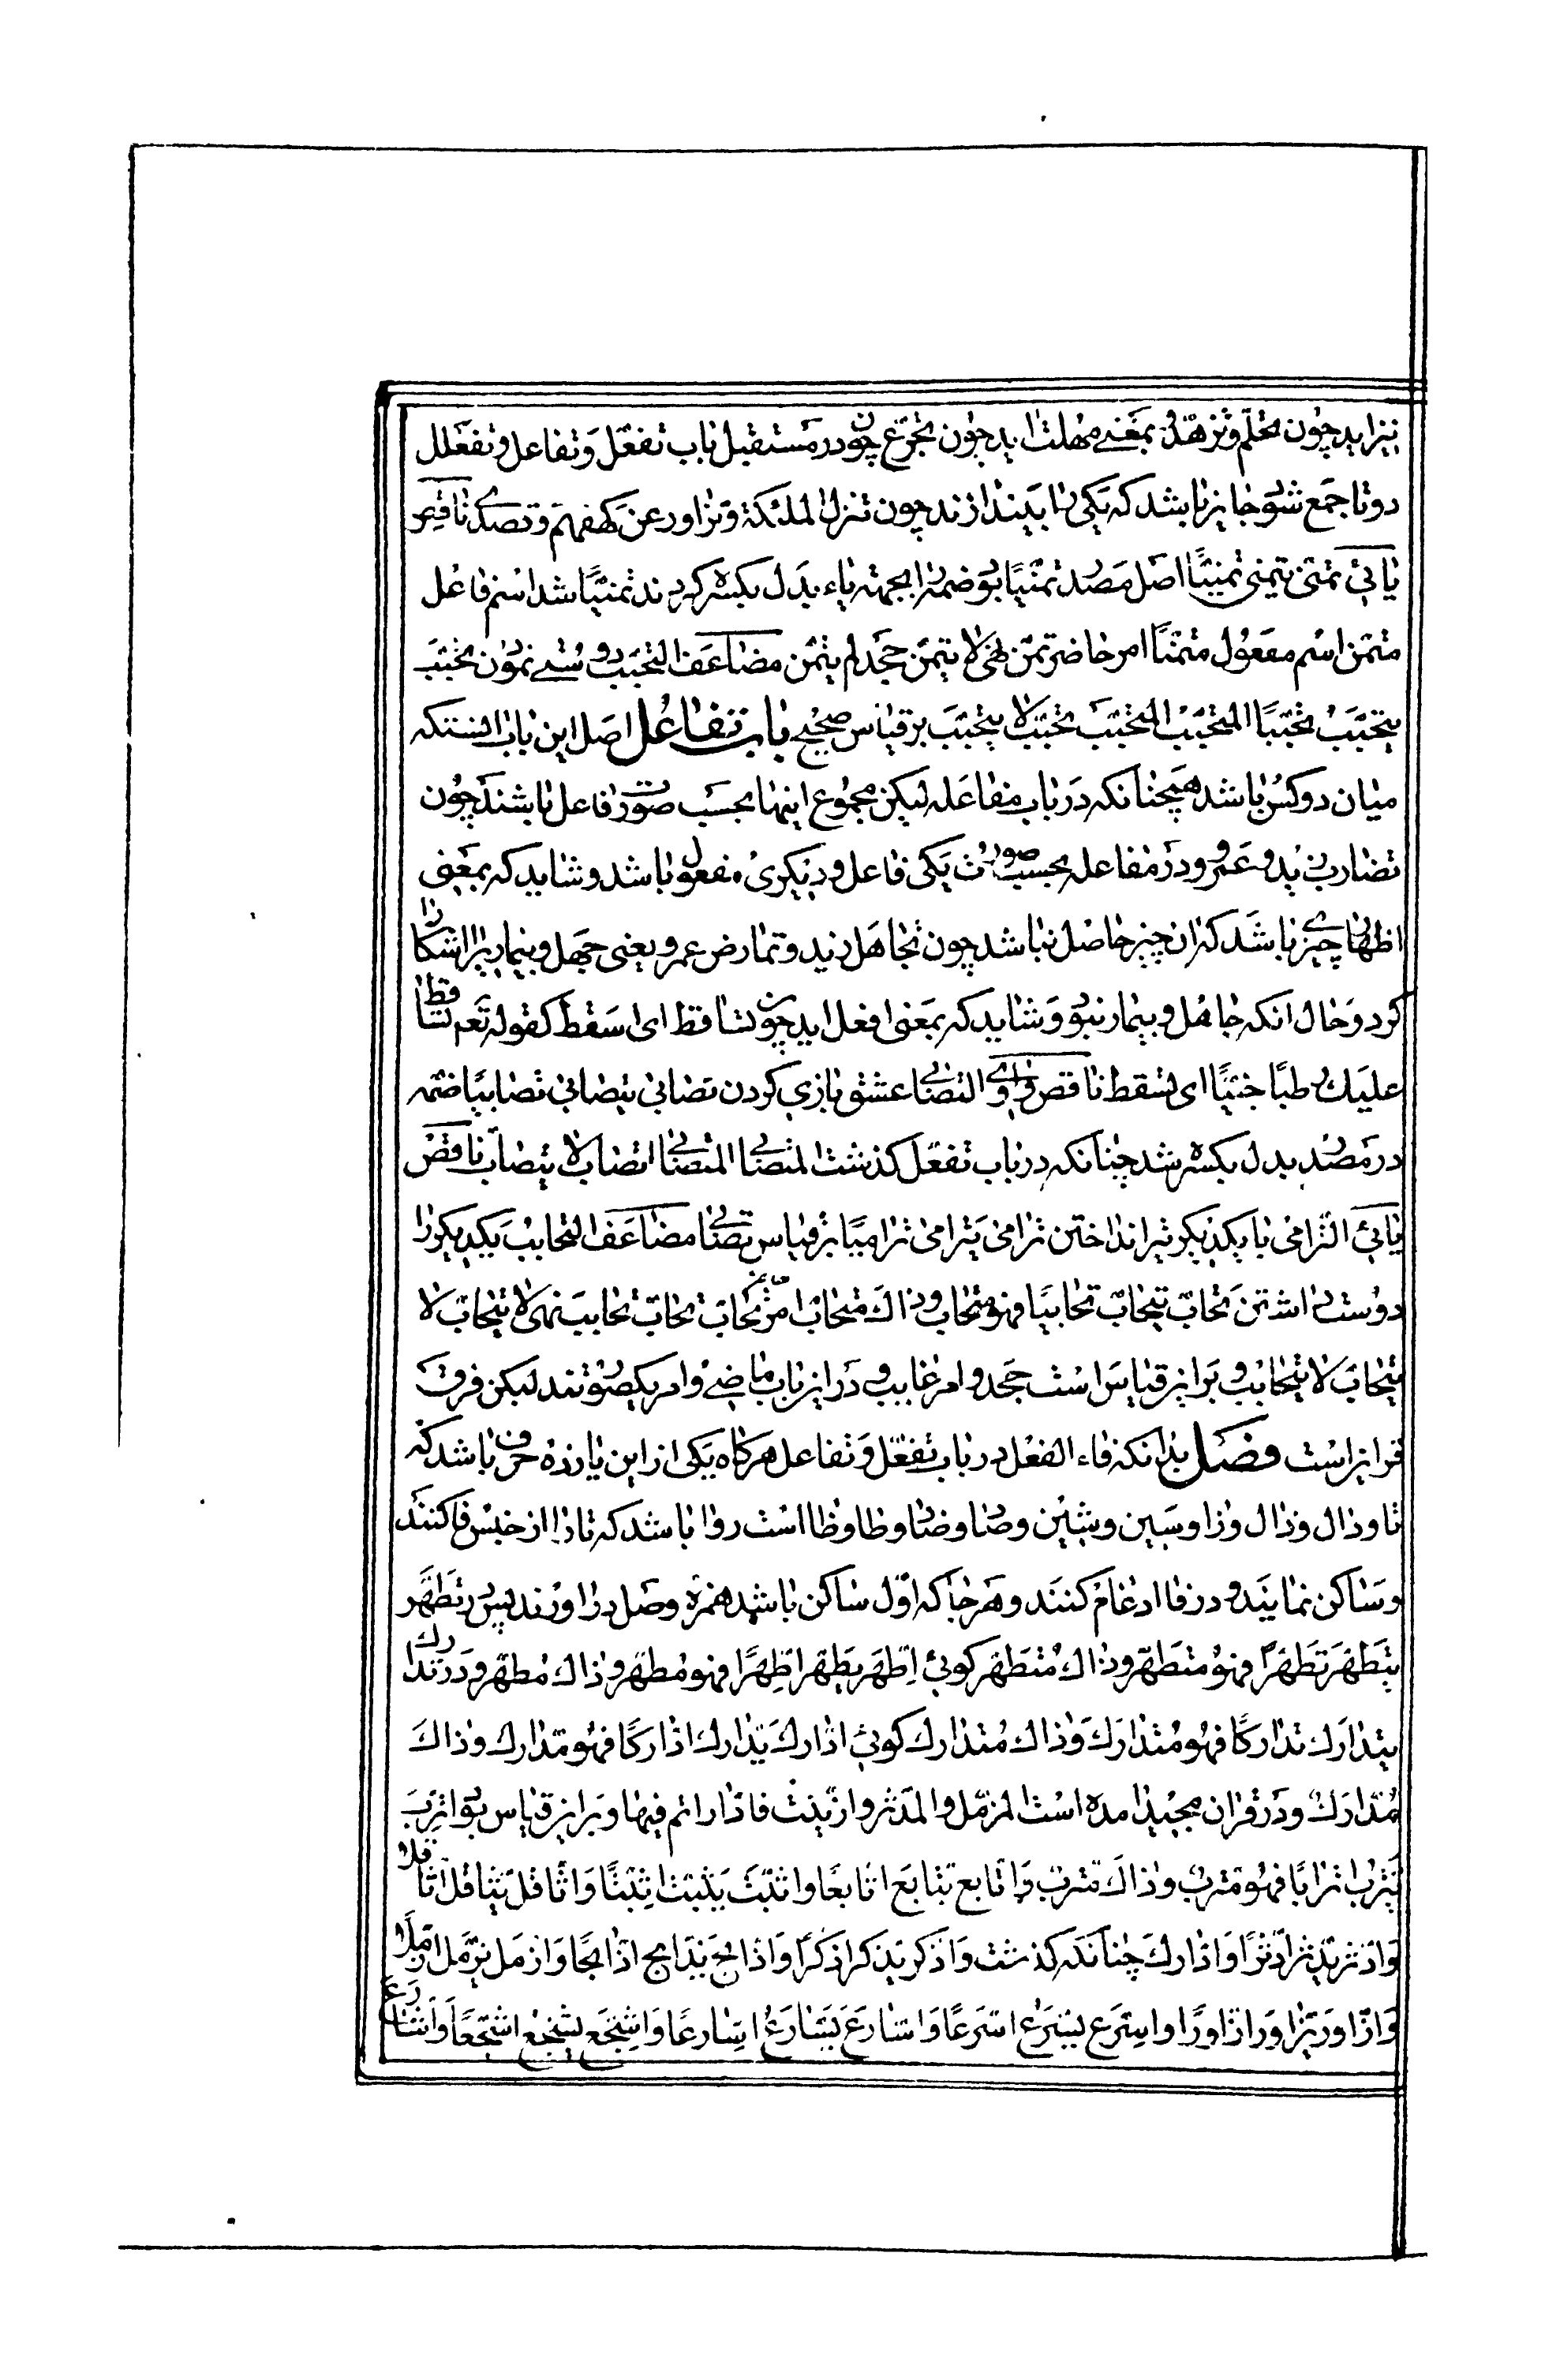 نیز اید چون تحلّم و تزهّد و بمعنی مهلت اید چون تجرّع چون در مستقبل باب تفعّل و تفاعل و تفعلل
دو تا جمع شود جایز باشد که یکی را بیندازند چون تنزل الملئکة و تزاور عن کهفهم و تصدی ناقص
یائی تمنّی یتمنی تمنیًا اصل مصدر تمنّیًا بود ضمه را بجهة یاء بدل بکسره کردند تمنّیًا شد اسم فاعل
متمن اسم مفعول متمنًا امر حاضر تمنّ نهی لا یتمن جحد لم یتمن مضاعف التحبب دوستی نمودن تحبّب
یتحبّب تحبّبًا المتحبّب المتحبّب تحبّب لا یتحبّب بر قیاس صحیح باب تفاعل اصل این باب انستکه
میان دو کس باشد همچنانکه در باب مفاعله لیکن مجموع اینها بحسب صورت فاعل باشند چون
تضارب زید و عمرو و در مفاعله بحسب صورت یکی فاعل و دیگری مفعول باشد و شاید که بمعنی
اظهار چیزی باشد که ان چیز حاصل نباشد چون تجاهل زید و تمارض عمرو یعنی جهل و بیماریرا اشکارا
کرد و حال انکه جاهل و بیمار نبود و شاید که بمعنی افعل اید چون تساقط ای اسقط کقوله تعم تساقط
علیک رطبًا جنیًا ای تسقط ناقص واوی التصابی عشق بازی کردن تصابی یتصابی تصابیًا ضمه
در مصدر بدل بکسره شد چنانکه در باب تفعّل کذشت المتصابی المتصابی تصاب لا یتصاب ناقص
یائی الترامی با یکدیکر تیر انداختن ترامی یترامی ترامیًا بر قیاس تصابی مضاعف التحابب یکدیکررا
دوست داشتن تحابّ یتحابّ تحاببًا فهو متحاب و ذاک متحابّ امر حاضر تحابّ تحابّ تحابب نهی لا یتحابّ لا
یتحابّ لا یتحابب و بر این قیاس است جحد و امر غایب و در این باب ماضی و امر یکصورتند لیکن فرق
فرایر است فصل بدانکه فاء الفعل در باب تفعّل و تفاعل هرکاه یکی از این یازده حرف باشد که
تا و ذال و ذال و زا و سین و شین و صاد و ضاد و طا و ظا است روا باشد که تا را از جنس فا کنند
و ساکن نمایند و در فا ادغام کنند و هر جا که اوّل ساکن باشد همزه وصل در اورند پس در تطهّر
یتطهّر تطهّرًا فهو متطهّر و ذاک متطهّر کوئی اطّهّر یطّهّر اطّهّرًا فهو مطّهّر و ذاک مطّهّر و در تدارک
یتدارک تدارکًا فهو متدارک و ذاک متدارک کوئی ادّارک یدّارک ادّارکًا فهو مدّارک و ذاک
مدّارک و در قران مجید امده است المزمّل و المدّثر و ازّیّنت فادّاراتم فیها و بر این قیاس بود اترّب
یترّب اترّابًا فهو مترّب و ذاک مترّب و اتّابع یتّابع اتّابعًا و اثبّت یثبّت اثبّتًا و اثّاقل یثّاقل اثّاقلا
و ادّثر یدّثر ادّثرًا و ادّارک چنانکه کذشت و اذّکر یذّکر اذّکرًا و اذّابح یذّابح اذّابحًا و ازّمّل یزّمّل ازّمّلا
و ازّاور یزّاور ازّاورًا و اسّرّع یسّرّع اسّرّعًا و اسّارع یسّارع اسّارعًا و اشّجّع یشّجّع اشّجّعًا و اشّارع